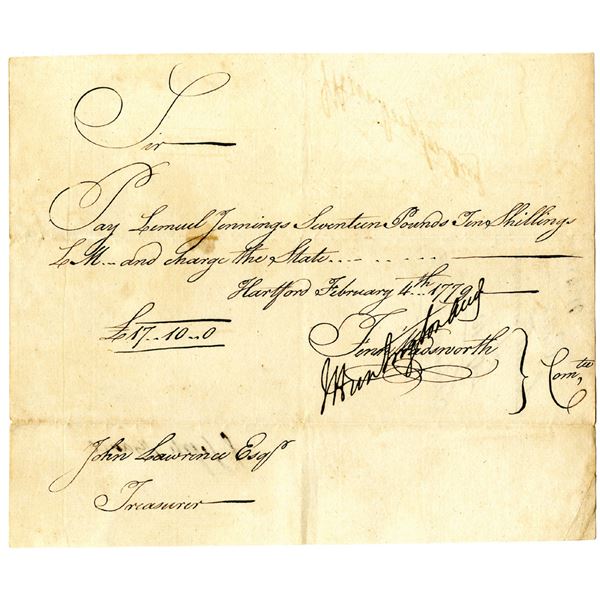 Sir
Pay Lemuel Jennings Seventeen Pounds Ten Shillings
L M and charge the State
Hartford February 4th 1779
£17..10..0
Fenn Wadsworth } Comtee
John Lawrence Esqr
Treasurer